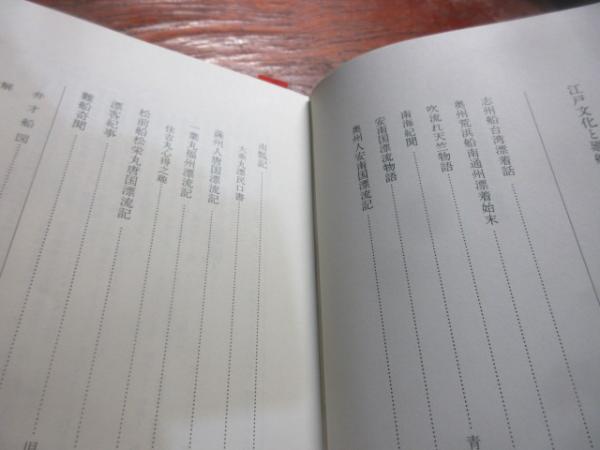 江戸文化と
志州船台湾漂着話
奥州荒浜船南通州漂着始末
吹流れ天竺物語
南海紀聞
安南国漂流物語
奥州人安南国漂流記
青
南瓢記
大乗丸漂民口書
薩州人唐国漂流記
一葉丸福州漂流記
住吉丸心得之端
松前船松栄丸唐国漂流記
漂客紀事
難船奇聞
弁才船図
解